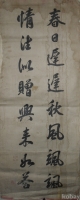 春日遲遲秋風颯颯
情往似贈興來如答